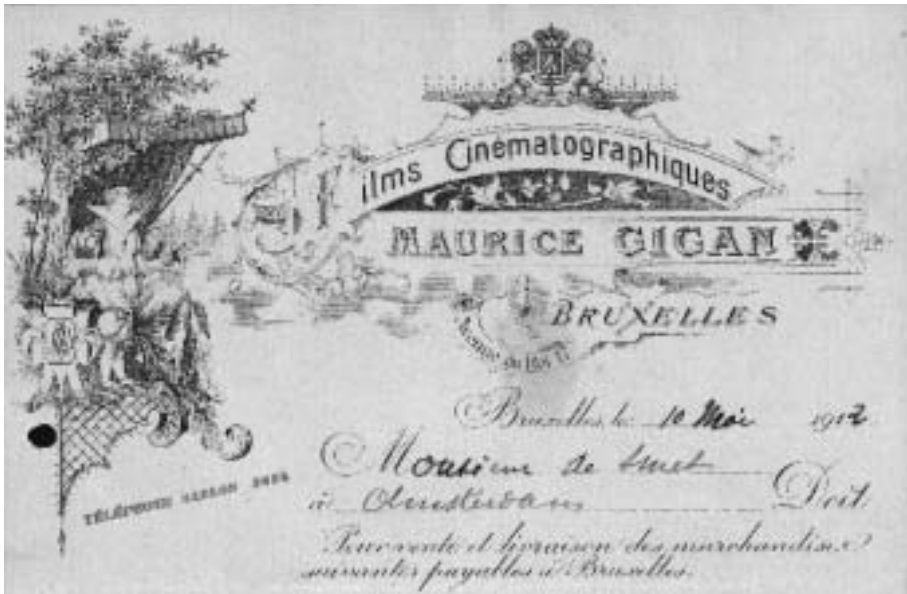 Films Cinématographiques
MAURICE GIGAN
BRUXELLES
Bruxelles, le 10 Mai 1912
Monsieur de Smet
à Amsterdam Doit
Pour vente et livraison des marchandises
suivantes payables à Bruxelles.
TÉLÉPHONE